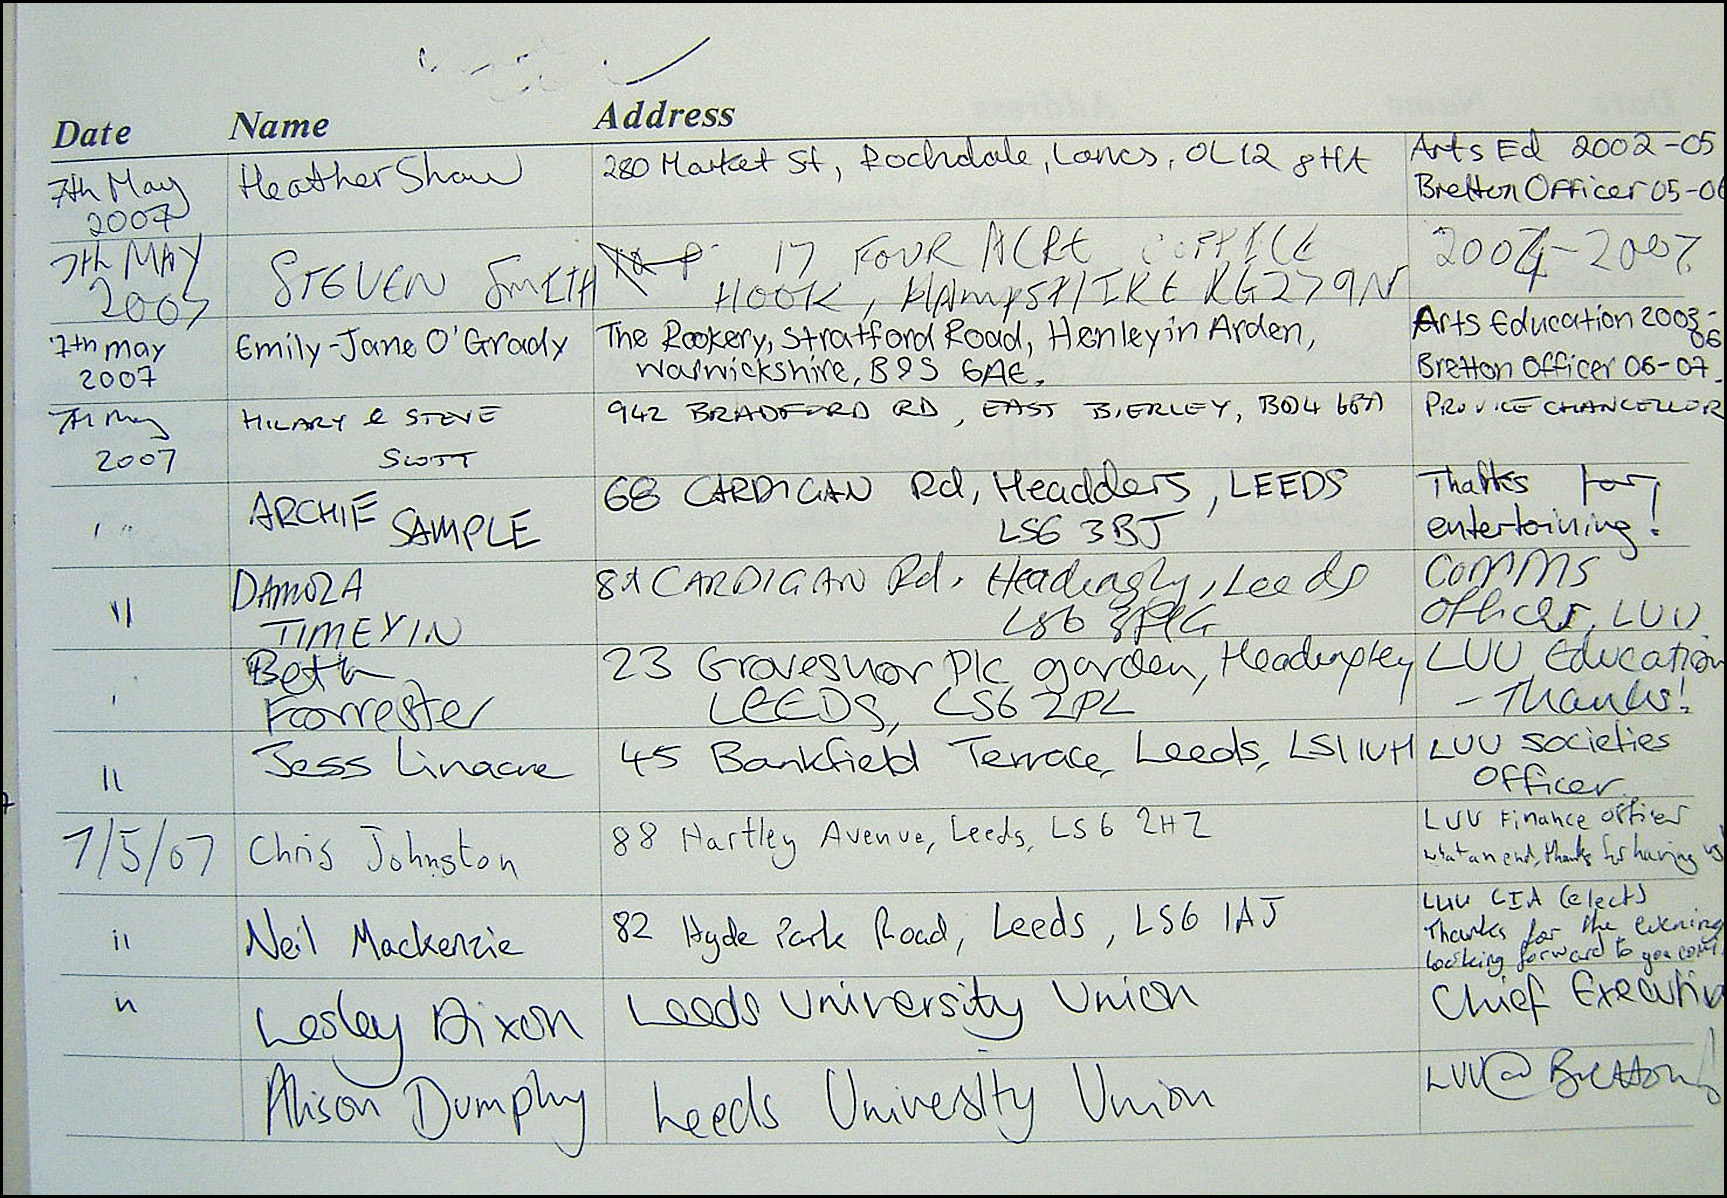 Date Name Address
7th May Heather Shaw 280 Market St, Rochdale, Lancs, OL12 8HA Arts Ed 2002-05
2007 Bretton Officer 05-06
7th MAY STEVEN SMITH 17 FOUR ACRE COPPICE 2004-2007
2007 HOOK, HAMPSHIRE RG27 9N
7th may Emily-Jane O'Grady The Rookery, Stratford Road, Henley in Arden, Arts Education 2003-06
2007 Warwickshire, B95 6AE. Bretton Officer 06-07.
7th May HILARY & STEVE 942 BRADFORD RD, EAST BIERLEY, BD4 6PA PRO VICE CHANCELLOR
2007 SCOTT
" ARCHIE 68 CARDIGAN Rd, Headders, LEEDS Thanks for
SAMPLE LS6 3BJ entertaining!
" DAMOLA CARDIGAN Rd, Headingly, Leeds Comms
TIMEYIN LS6 Officer, LUU
Beth 23 Grovesnor Plc garden, Headingley LUU Education
Forrester LEEDS, LS6 2PL - Thanks!
" Jess Linacre 45 Bankfield Terrace, Leeds, LS1 1UH LUU Societies
Officer
7/5/07 Chris Johnston 88 Hartley Avenue, Leeds, LS6 2HZ LUU Finance officer
what an end, thanks for having us
" Neil Mackenzie 82 Hyde Park Road, Leeds, LS6 1AJ LUU CIA (elect)
Thanks for the evening
looking forward to you
" Lesley Dixon Leeds University Union Chief Executiv
Alison Dumphy Leeds University Union LUU@Bretton